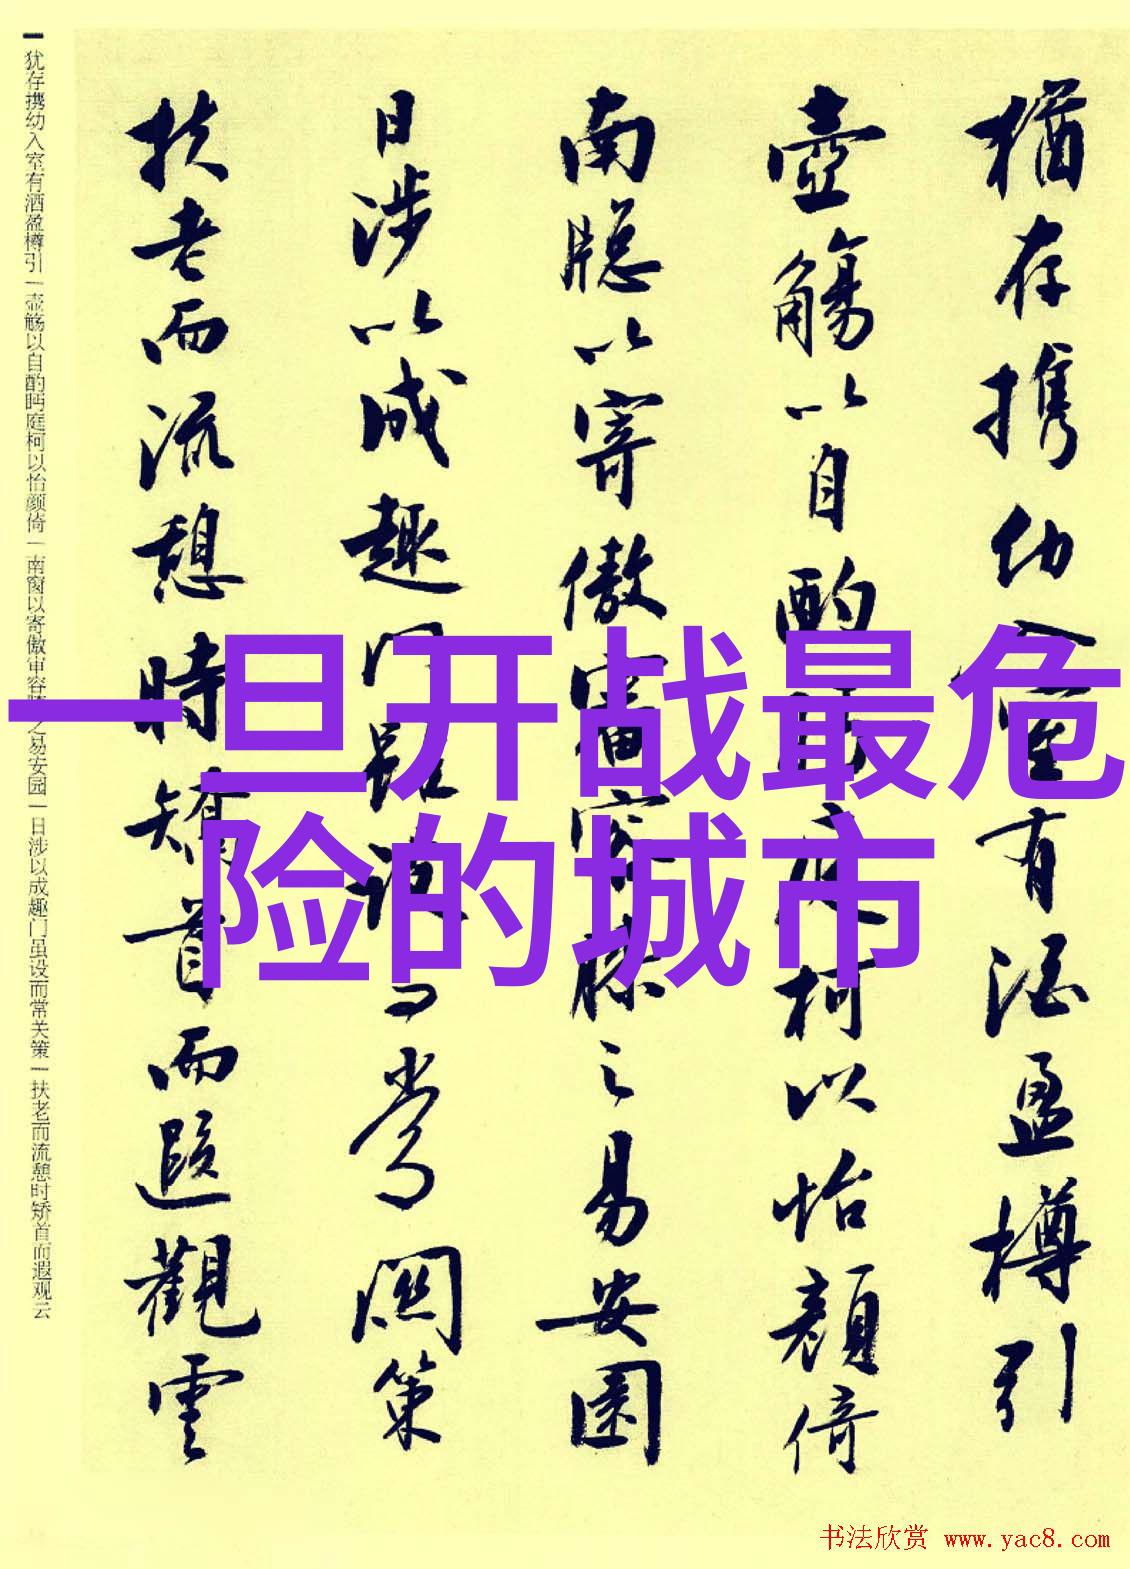 猶存携幼入室有酒盈樽引
壺觴以自酌眄庭柯以怡顔倚
南牕以寄傲審容膝之易安園
日涉以成趣門雖設而常關策
扶老而流憩時矯首而遐觀雲
犹存携幼入室有酒盈樽引 | 壶觞以自酌眄庭柯以怡颜倚 | 南窗以寄傲审容膝之易安园 | 日涉以成趣门虽设而常关策 | 扶老而流憩时矫首而遐观云
一旦开战最危
险的城市
书法欣赏 www.yac8.com